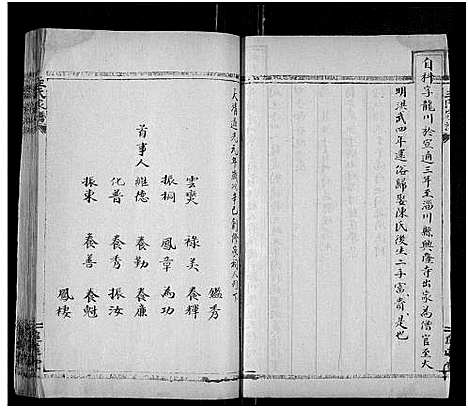 自科字龍川於宣通三年至淄川縣興隆寺出家為僧官至大
明洪武四年還俗歸娶陳氏後生二子富貴是也
大清道光元年歲次辛巳創修
首事人
雲奱 祿美 鑑秀
振桐 鳳章 養輝
維德 養勤 為功
化普 養秀 養廉
振東 養善 振汝
養魁
鳳棲